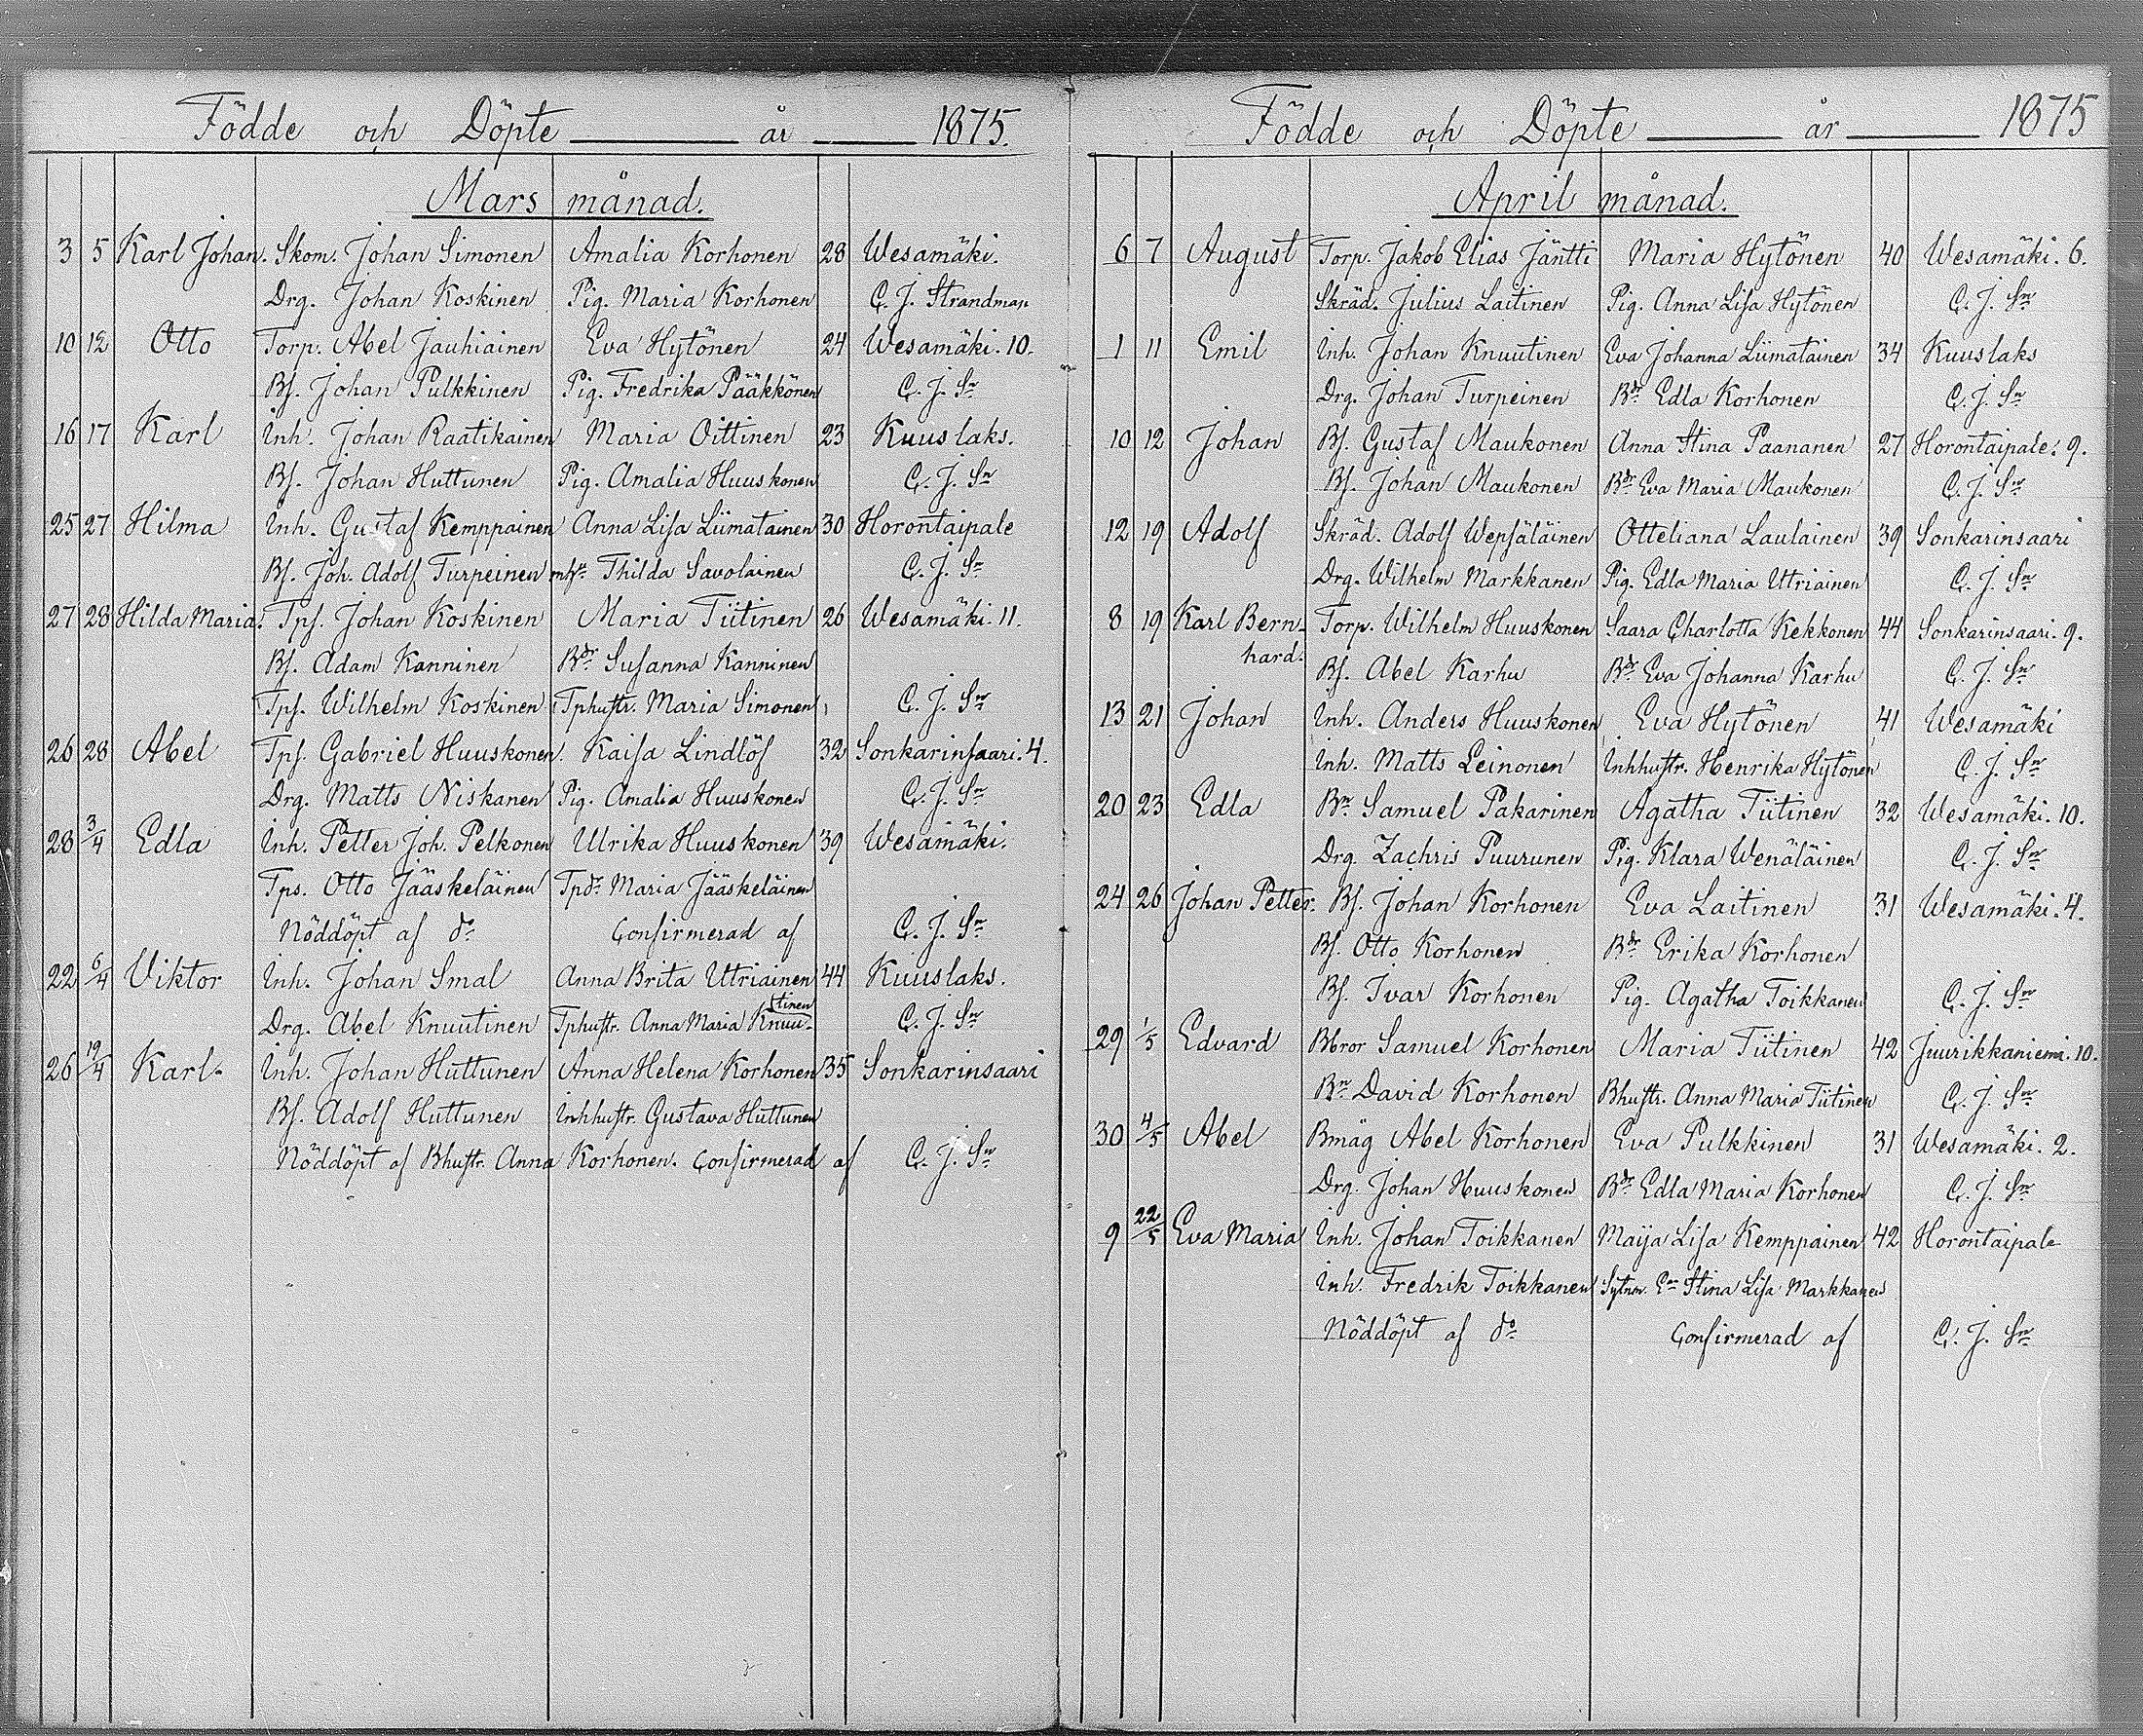 Födde och Döpte år 1875.
Mars månad.
3 5 Karl Johan. Skom. Johan Simonen Amalia Korhonen 28 Wesamäki.
Drg. Johan Koskinen Pig. Maria Korhonen C. J. Strandman
10 12 Otto Torp. Abel Jauhiainen Eva Hytönen 24 Wesamäki. 10.
Bs. Johan Pulkkinen Pig. Fredrika Pääkkönen C. J. Sn
16 17 Karl Inh. Johan Raatikainen Maria Oittinen 23 Kuuslaks.
Bs. Johan Huttunen Pig. Amalia Huuskonen C. J. Sn
25 27 Hilma Inh. Gustaf Kemppainen Anna Lisa Liimatainen 30 Horontaipale
Bs. Joh. Adolf Turpeinen Thilda Savolainen C. J. Sn
27 28 Hilda Maria. Tps. Johan Koskinen Maria Tiitinen 26 Wesamäki. 11.
Bs. Adam Kanninen Bdr Susanna Kanninen
Tps. Wilhelm Koskinen Tphustr. Maria Simonen C. J. Sn
26 28 Abel Tps. Gabriel Huuskonen. Kaisa Lindlöf 32 Sonkarinsaari. 4.
Drg. Matts Niskanen Pig. Amalia Huuskonen C. J. Sn
28 3/4 Edla Inh. Petter Joh. Pelkonen Ulrika Huuskonen 39 Wesamäki.
Tps. Otto Jääskeläinen Tpdr Maria Jääskeläinen
Nöddöpt af do Confirmerad af C. J. Sn
22 6/4 Viktor Inh. Johan Smal Anna Brita Utriainen 44 Kuuslaks.
Drg. Abel Knuutinen Tphustr. Anna Maria Knuutinen C. J. Sn
26 19/4 Karl. Inh. Johan Huttunen Anna Helena Korhonen 35 Sonkarinsaari
Bs. Adolf Huttunen Inhhustr. Gustava Huttunen
Nöddöpt af Bhustr. Anna Korhonen. Confirmerad af C. J. Sn
Födde och Döpte år 1875
April månad.
6 7 August Torp. Jakob Elias Jäntti Maria Hytönen 40 Wesamäki. 6.
Skräd. Julius Laitinen Pig. Anna Lisa Hytönen C. J. Sn
1 11 Emil Inh. Johan Knuutinen Eva Johanna Liimatainen 34 Kuuslaks
Drg. Johan Turpeinen Bdr Edla Korhonen C. J. Sn
10 12 Johan Bs. Gustaf Maukonen Anna Stina Paananen 27 Horontaipale. 9.
Bs. Johan Maukonen Bdr Eva Maria Maukonen C. J. Sn
12 19 Adolf Skräd. Adolf Wepsäläinen Otteliana Laulainen 39 Sonkarinsaari
Drg. Wilhelm Markkanen Pig. Edla Maria Utriainen C. J. Sn
8 19 Karl Bern- Torp. Wilhelm Huuskonen Saara Charlotta Kekkonen 44 Sonkarinsaari. 9.
hard. Bs. Abel Karhu Bdr Eva Johanna Karhu C. J. Sn
13 21 Johan Inh. Anders Huuskonen Eva Hytönen 41 Wesamäki
Inh. Matts Leinonen Inhhustr. Henrika Hytönen C. J. Sn
20 23 Edla Bn Samuel Pakarinen Agatha Tiitinen 32 Wesamäki. 10.
Drg. Zachris Puurunen Pig. Klara Wenäläinen C. J. Sn
24 26 Johan Petter. Bs. Johan Korhonen Eva Laitinen 31 Wesamäki. 4.
Bs. Otto Korhonen Bdr Erika Korhonen
Bs. Ivar Korhonen Pig. Agatha Toikkanen C. J. Sn
29 1/5 Edvard Bbror Samuel Korhonen Maria Tiitinen 42 Juurikkaniemi. 10.
Bn David Korhonen Bhustr. Anna Maria Tiitinen C. J. Sn
30 4/5 Abel Bmåg Abel Korhonen Eva Pulkkinen 31 Wesamäki. 2.
Drg. Johan Huuskonen Bdr Edla Maria Korhonen C. J. Sn
9 22/5 Eva Maria Inh. Johan Toikkanen Maija Lisa Kemppainen 42 Horontaipale
Inh. Fredrik Toikkanen Stina Lisa Markkanen
Nöddöpt af do Confirmerad af C. J. Sn